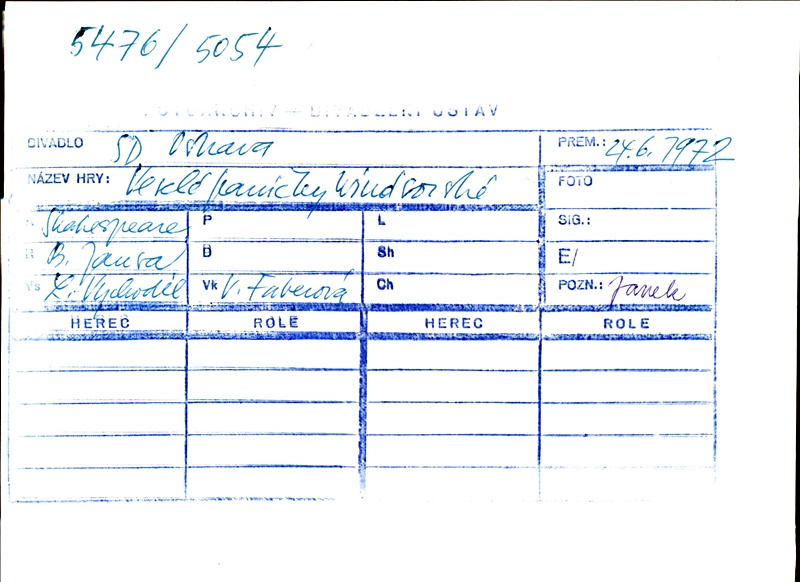 5476/ 5054
FOTOARCHIV — DIVADELNÍ ÚSTAV
DIVADLO SD Ostrava PREM.: 24.6.1972
NÁZEV HRY: Veselé paničky Windsorské FOTO
A Shakespeare P L SIG.:
R B. Jansa D Sh E/
Vs L. Vychodil Vk V. Faberová Ch POZN.: Janek
HEREC ROLE HEREC ROLE